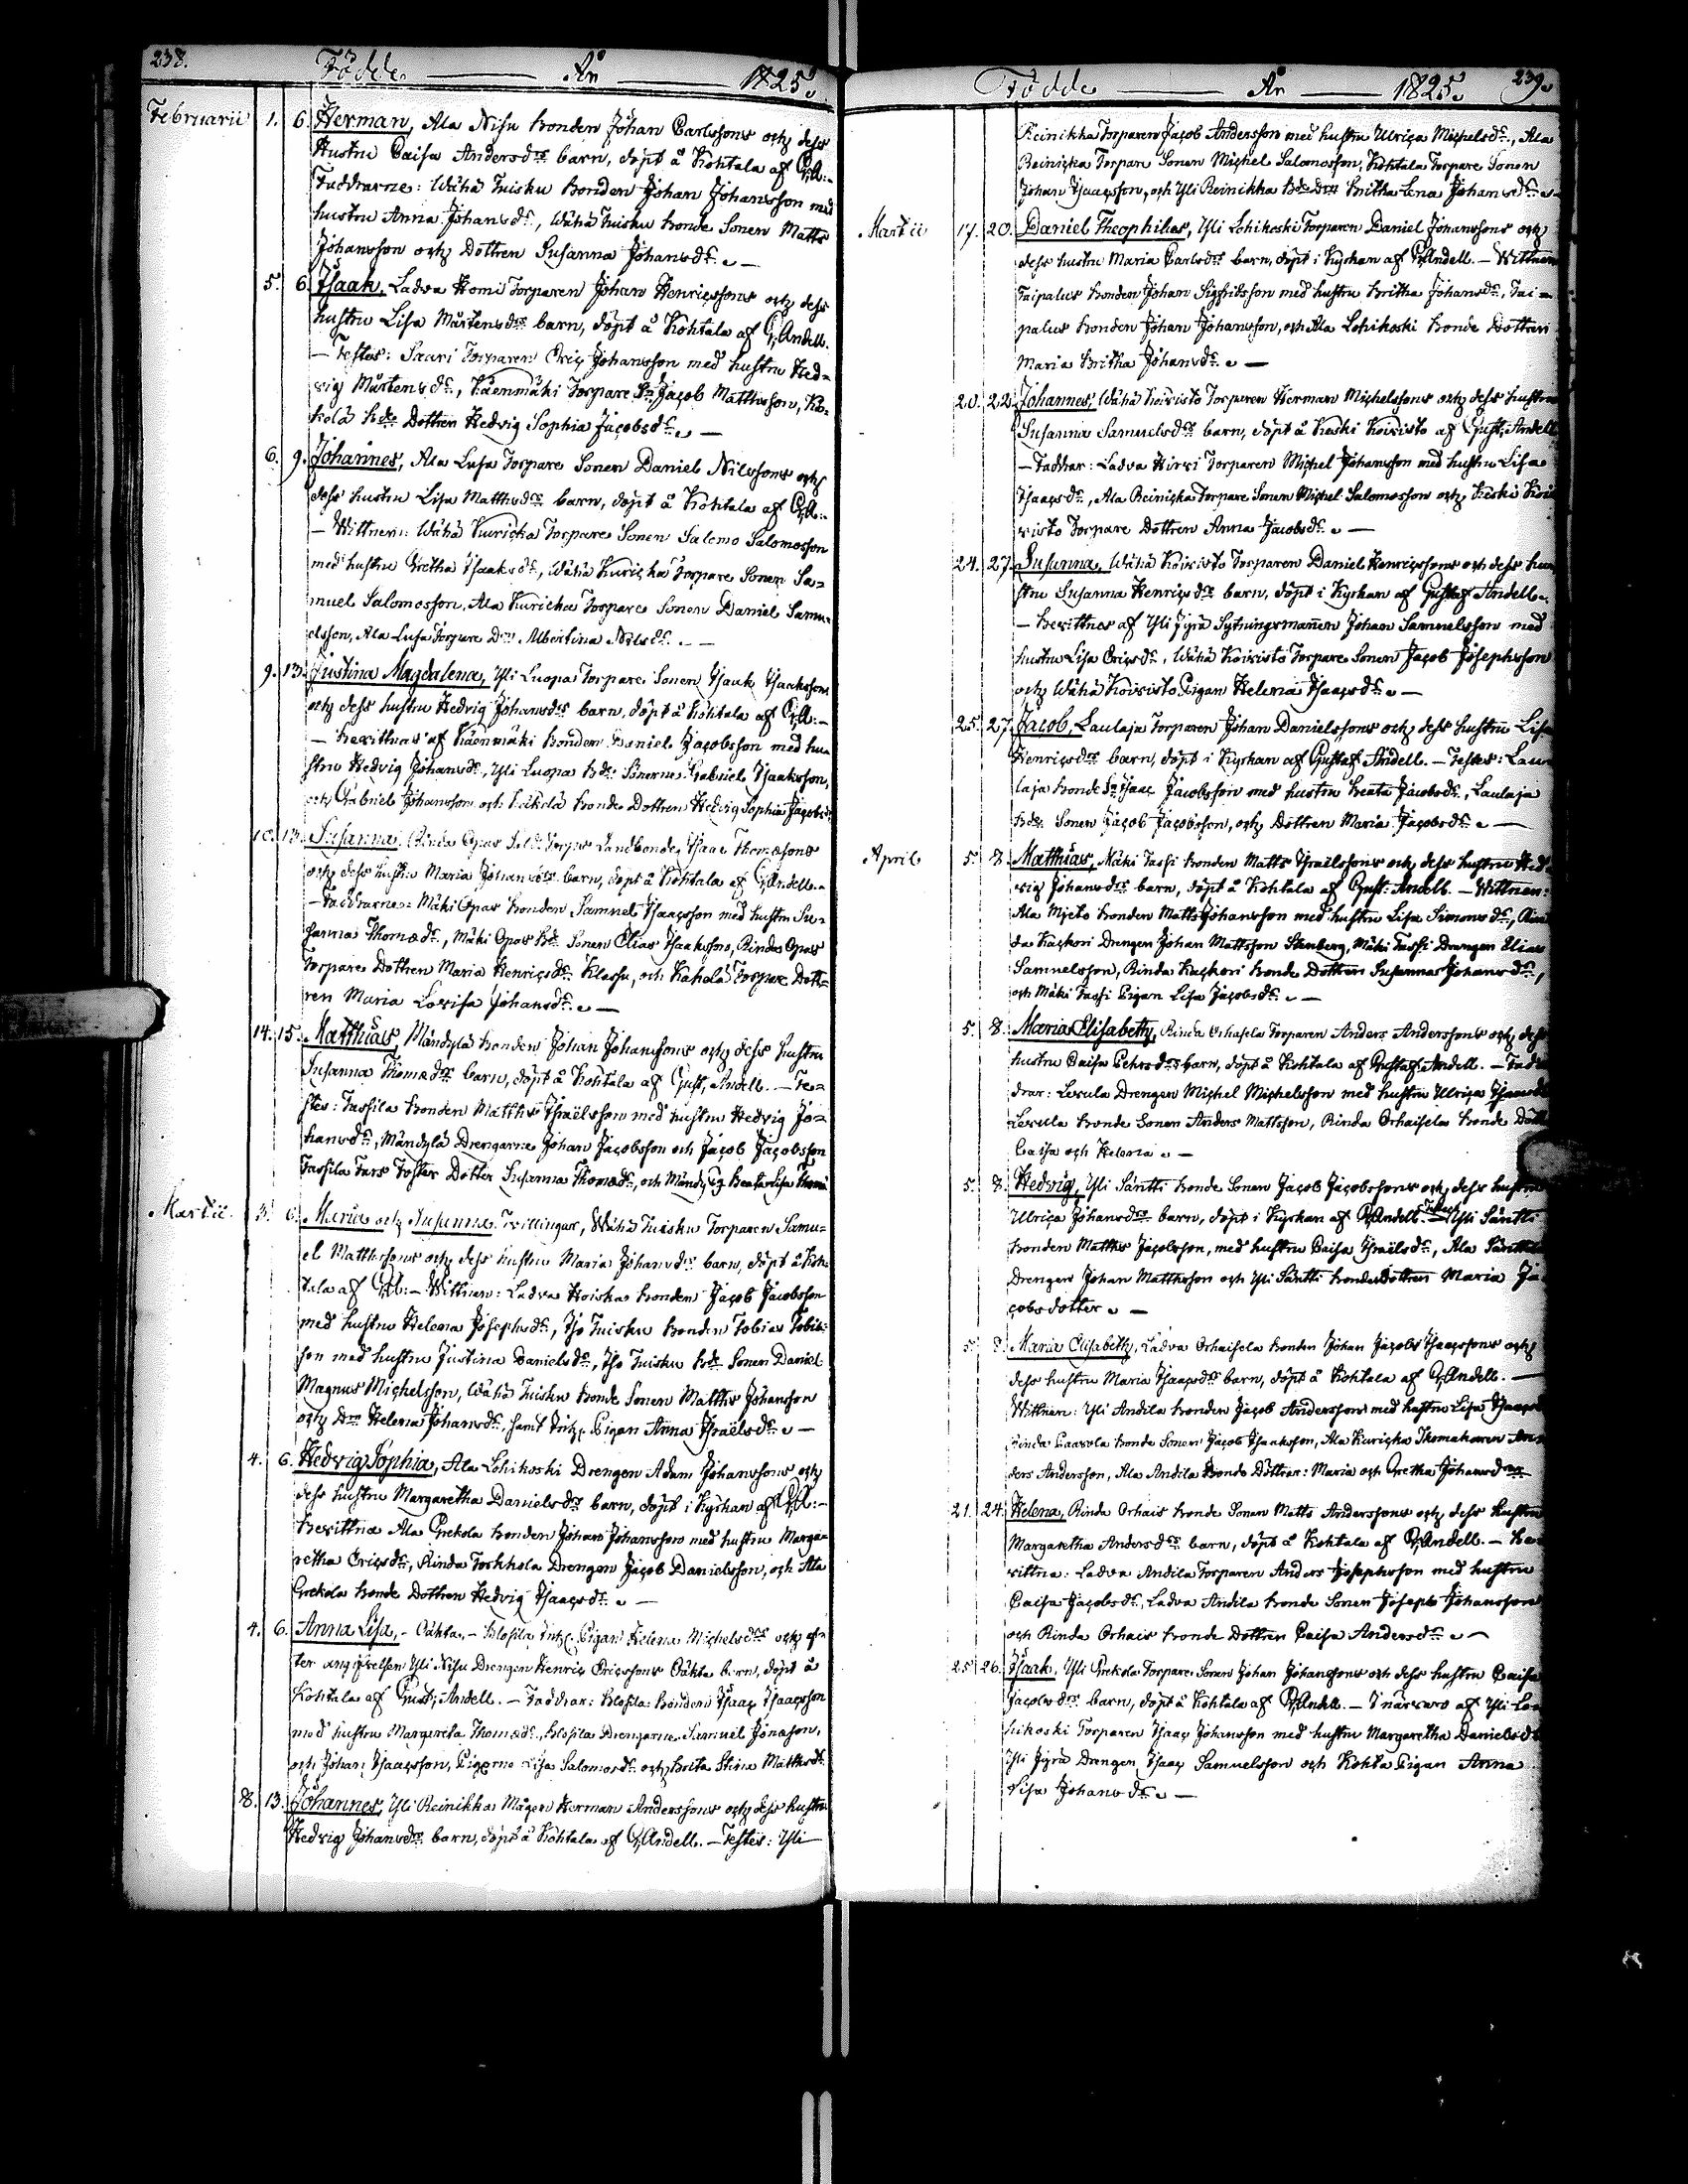 238. Födde År 1825.
Februarii 1. 6. Herman, Ala Nisu bonden Johan Carlssons och dess
Hustru Caisa Andersdrs barn, döpt å Kohtala af G,A:
Faddrarne: Wähä Tuisku Bonden Johan Johansson med
hustru Anna Johansdr, Wähä Tuisku bonde Sonen Matts
Johansson och Dottren Susanna Johansdr
5. 6. Isaak, Ladva Homi Torparen Johan Henricssons och dess
hustru Lisa Mårtensdrs barn, döpt å Kohtala af G,Andell.
— Testes: Saari Torparen Eric Johansson med hustru Hed-
vig Mårtensdr, Käenmäki Torpare Sn Jacob Matthsson,
bde Dottren Hedvig Sophia Jacobsdr
6. 9. Johannes, Ala Lusa Torpare Sonen Daniel Nilssons och
dess hustru Lisa Matthsdrs barn, döpt å Kohtala af G,A:
— Wittnen: Wähä Kuricka Torpare Sonen Salomo Salomosson
med hustru Gretha Isaaksdr, Wähä Kuricka Torpare Sonen Sa-
muel Salomosson, Ala Kuricka Torpare Sonen Daniel Samu-
elsson, Ala Lusa Torpare Drn Albertina Nilsdr
9. 13. Justina Magdalena, Yli Luopa Torpare Sonen Isaak Isaakssons
och dess hustru Hedvig Johansdrs barn, döpt å Kohtala af G,A:
— bevittnas af Käenmäki bonden Daniel Jacobsson med hu-
stru Hedvig Johansdr, Yli Luopa bde Sönerne Gabriel Isaaksson,
och Gabriel Johansson och bonde Dottren Hedvig Sophia Jacobsdr
10. 13. Susanna, Rinda Opas Landbonde Isaac Thomæsons
och dess hustru Maria Johansdrs barn, döpt å Kohtala af G,Andell.
— Faddrarne: Mäki Opas bonden Samuel Isaacsson med hustru Su-
sanna Thomædr, Mäki Opas bde Sonen Elias Isaaksson, Rinda Opas
Torpare Dottren Maria Henricsdr Klasfu, och Kahelä Torpare Dott-
ren Maria Lovisa Johansdr
14. 15. Matthias, Mändylä bonden Johan Johanssons och dess hustru
Susanna Thomædrs barn, döpt å Kohtala af Gust, Andell. — Te-
stes: Tassila bonden Matths Israëlsson med hustru Hedvig Jo-
hansdr, Mändylä Drengarne Johan Jacobsson och Jacob Jacobsson
Tassila Fars Foster Dotter Susanna Thomædr, och Beata Lisa
Martii 3. 6. Maria och Susanna Tvillingar, Wähä Tuisku Torparen Samu-
el Matthssons och dess hustru Maria Johansdrs barn, döpt å Koh-
tala af G,A: — Wittnen: Ladva Hoiska bonden Jacob Jacobsson
med hustru Helena Josephsdr, Iso Tuisku bonden Tobias Tobias-
son med hustru Justina Danielsdr, Iso Tuisku bde Sonen Daniel
Magnus Michelsson, Wähä Tuisku bonde Sonen Matths Johansson
och Drn Helena Johansdr, samt Inh. Pigan Anna Israëlsdr
4. 6. Hedvig Sophia, Ala Lohikoski Drengen Adam Johanssons och
dess hustru Margaretha Danielsdrs barn, döpt i Kyrkan af G,A:
bevittna Ala Grekola bonden Johan Johansson med hustru Marga-
retha Ericsdr, Rinda Torkkola Drengen Jacob Danielsson, och Ala
Grekola bonde Dottren Hedvig Isaacsdr
4. 6. Anna Lisa, - Oäkta, - Klosila Inh. Pigan Helena Michelsdrs och ef-
ter angifvelsen Yli Nisu Drengen Henric Ericssons Oäkta barn, döpt å
Kohtala af Gust, Andell. — Faddrar: Klosila Bonden Isaac Isaacsson
med hustru Margareta Thomædr, Klosila Drengarne Samuel Jonæson,
och Johan Isaacsson, Pigorne Lisa Salomosdr och Brita Stina Matthsdr
8. 13. Johannes, Yli Reinikka Mågen Herman Anderssons och dess hustru
Hedvig Johansdrs barn, döpt å Kohtala af G,Andell. — Testes: Yli
Födde År 1825. 239.
Reinikka Torparen Jacob Andersson med hustru Ulrica Michelsdr, Ala
Reinicka Torpare Sonen Michel Salomosson, Kohtala Torpare Sonen
Johan Isaacsson, och Yli Reinikka bde drn Britha Lena Johansdr
Martii 17. 20. Daniel Theophilus, Yli Lohikoski Torparen Daniel Johanssons och
dess hustru Maria Carlsdrs barn, döpt i Kyrkan af G,Andell. — Wittnen
Taipalus bonden Johan Sigfridsson med hustru Britha Johansdr, Tai-
palus bonden Johan Johansson, och Ala Lohikoski bonde Dottren
Maria Britha Johansdr
20. 22. Johannes, Wähä Koivisto Torparen Herman Michelssons och dess hustru
Susanna Samuelsdrs barn, döpt å Keski Koivisto af Gust, Andell
— Faddrar: Ladva Hirvi Torparen Michel Johansson med hustru Lisa
Isaacsdr, Ala Reinicka Torpare Sonen Michel Salomosson och Keski Koi-
visto Torpare Dottren Anna Jacobsdr
24. 27. Susanna, Wähä Koivisto Torparen Daniel Henricssons och dess hu-
stru Susanna Henricsdrs barn, döpt i Kyrkan af Gustaf Andell.
— bevittnas af Yli Jyrä Sytningsmannen Johan Samuelsson med
hustru Lisa Ericsdr, Wähä Koivisto Torpare Sonen Jacob Josephsson
och Wähä Koivisto Pigan Helena Isaacsdr
25. 27. Jacob, Laulaja Torparen Johan Danielssons och dess hustru Lisa
Henricsdrs barn, döpt i Kyrkan af Gustaf Andell. — Testes: Lau-
laja bonde Sn Isaac Jacobsson med hustru Beata Jacobsdr, Laulaja
bde Sonen Jacob Jacobsson, och Dottren Maria Jacobsdr
April 5. 8. Matthias, Mäki Tassi bonden Matts Israelssons och dess hustru Hed-
vig Johansdrs barn, döpt å Kohtala af Gust: Andell. — Wittnen:
Ala Mieto bonden Matts Johansson med hustru Lisa Simonsdr, Rin-
da Kackori Drengen Johan Mattsson Stenberg, Mäki Tassi Drengen Elias
Samuelsson, Rinda Kackori bonde Dottren Susanna Johansdr,
och Mäki Tassi Pigan Lisa Jacobsdr
5. 8. Maria Elisabeth, Rinda Orhaisela Torparen Anders Anderssons och dess
hustru Caisa Pehrsdrs barn, döpt å Kohtala af Gustaf Andell. — Fad-
drar: Levula Drengen Michel Michelsson med hustru Ulrica Isaacsdr
Levula bonde Sonen Anders Mattsson, Rinda Orhaisela bonde Dött
Caisa och Helena
5. 8. Hedvig, Yli Säntti bonde Sonen Jacob Jacobssons och dess hustru
Ulrica Johansdrs barn, döpt i Kyrkan af G,Andell. — Testes Yli Säntti
bonden Matths Jacobsson, med hustru Caisa Israëlsdr, Ala Säntti
Drengen Johan Matthsson och Yli Säntti bonde Dottren Maria Ja-
cobsdotter
5. 8. Maria Elisabeth, Ladva Orhaisela bonden Johan Jacob Isaacssons och
dess hustru Maria Isaacsdrs barn, döpt å Kohtala af G,Andell. —
Wittnen: Yli Andila bonden Jacob Andersson med hustru Lisa Isaacsdr
Rinda Paavola bonde Sonen Jacob Isaaksson, Ala Kuricka Skomakaren An-
ders Andersson, Ala Andila Bonde Döttrar: Maria och Gretha Johansdrar
21. 24. Helena, Rinda Orhais bonde Sonen Matts Anderssons och dess hustru
Margaretha Andersdrs barn, döpt å Kohtala af G,Andell. — Be-
vittna: Ladva Andila Torparen Anders Josephsson med hustru
Caisa Jacobsdr, Ladva Andila bonde Sonen Joseph Johansson
och Rinda Orhais bonde Dottren Caisa Andersdr
25. 26. Isaak, Yli Grekola Torpare Sonen Johan Johanssons och dess hustru Caisa
Jacobsdrs barn, döpt å Kohtala af G,Andell. — I närvaro af Yli Lo-
hikoski Torparen Isaac Johansson med hustru Margaretha Danielsdr
Yli Jyrä Drengen Isaac Samuelsson och Kohta Pigan Anna
Lisa Johansdr